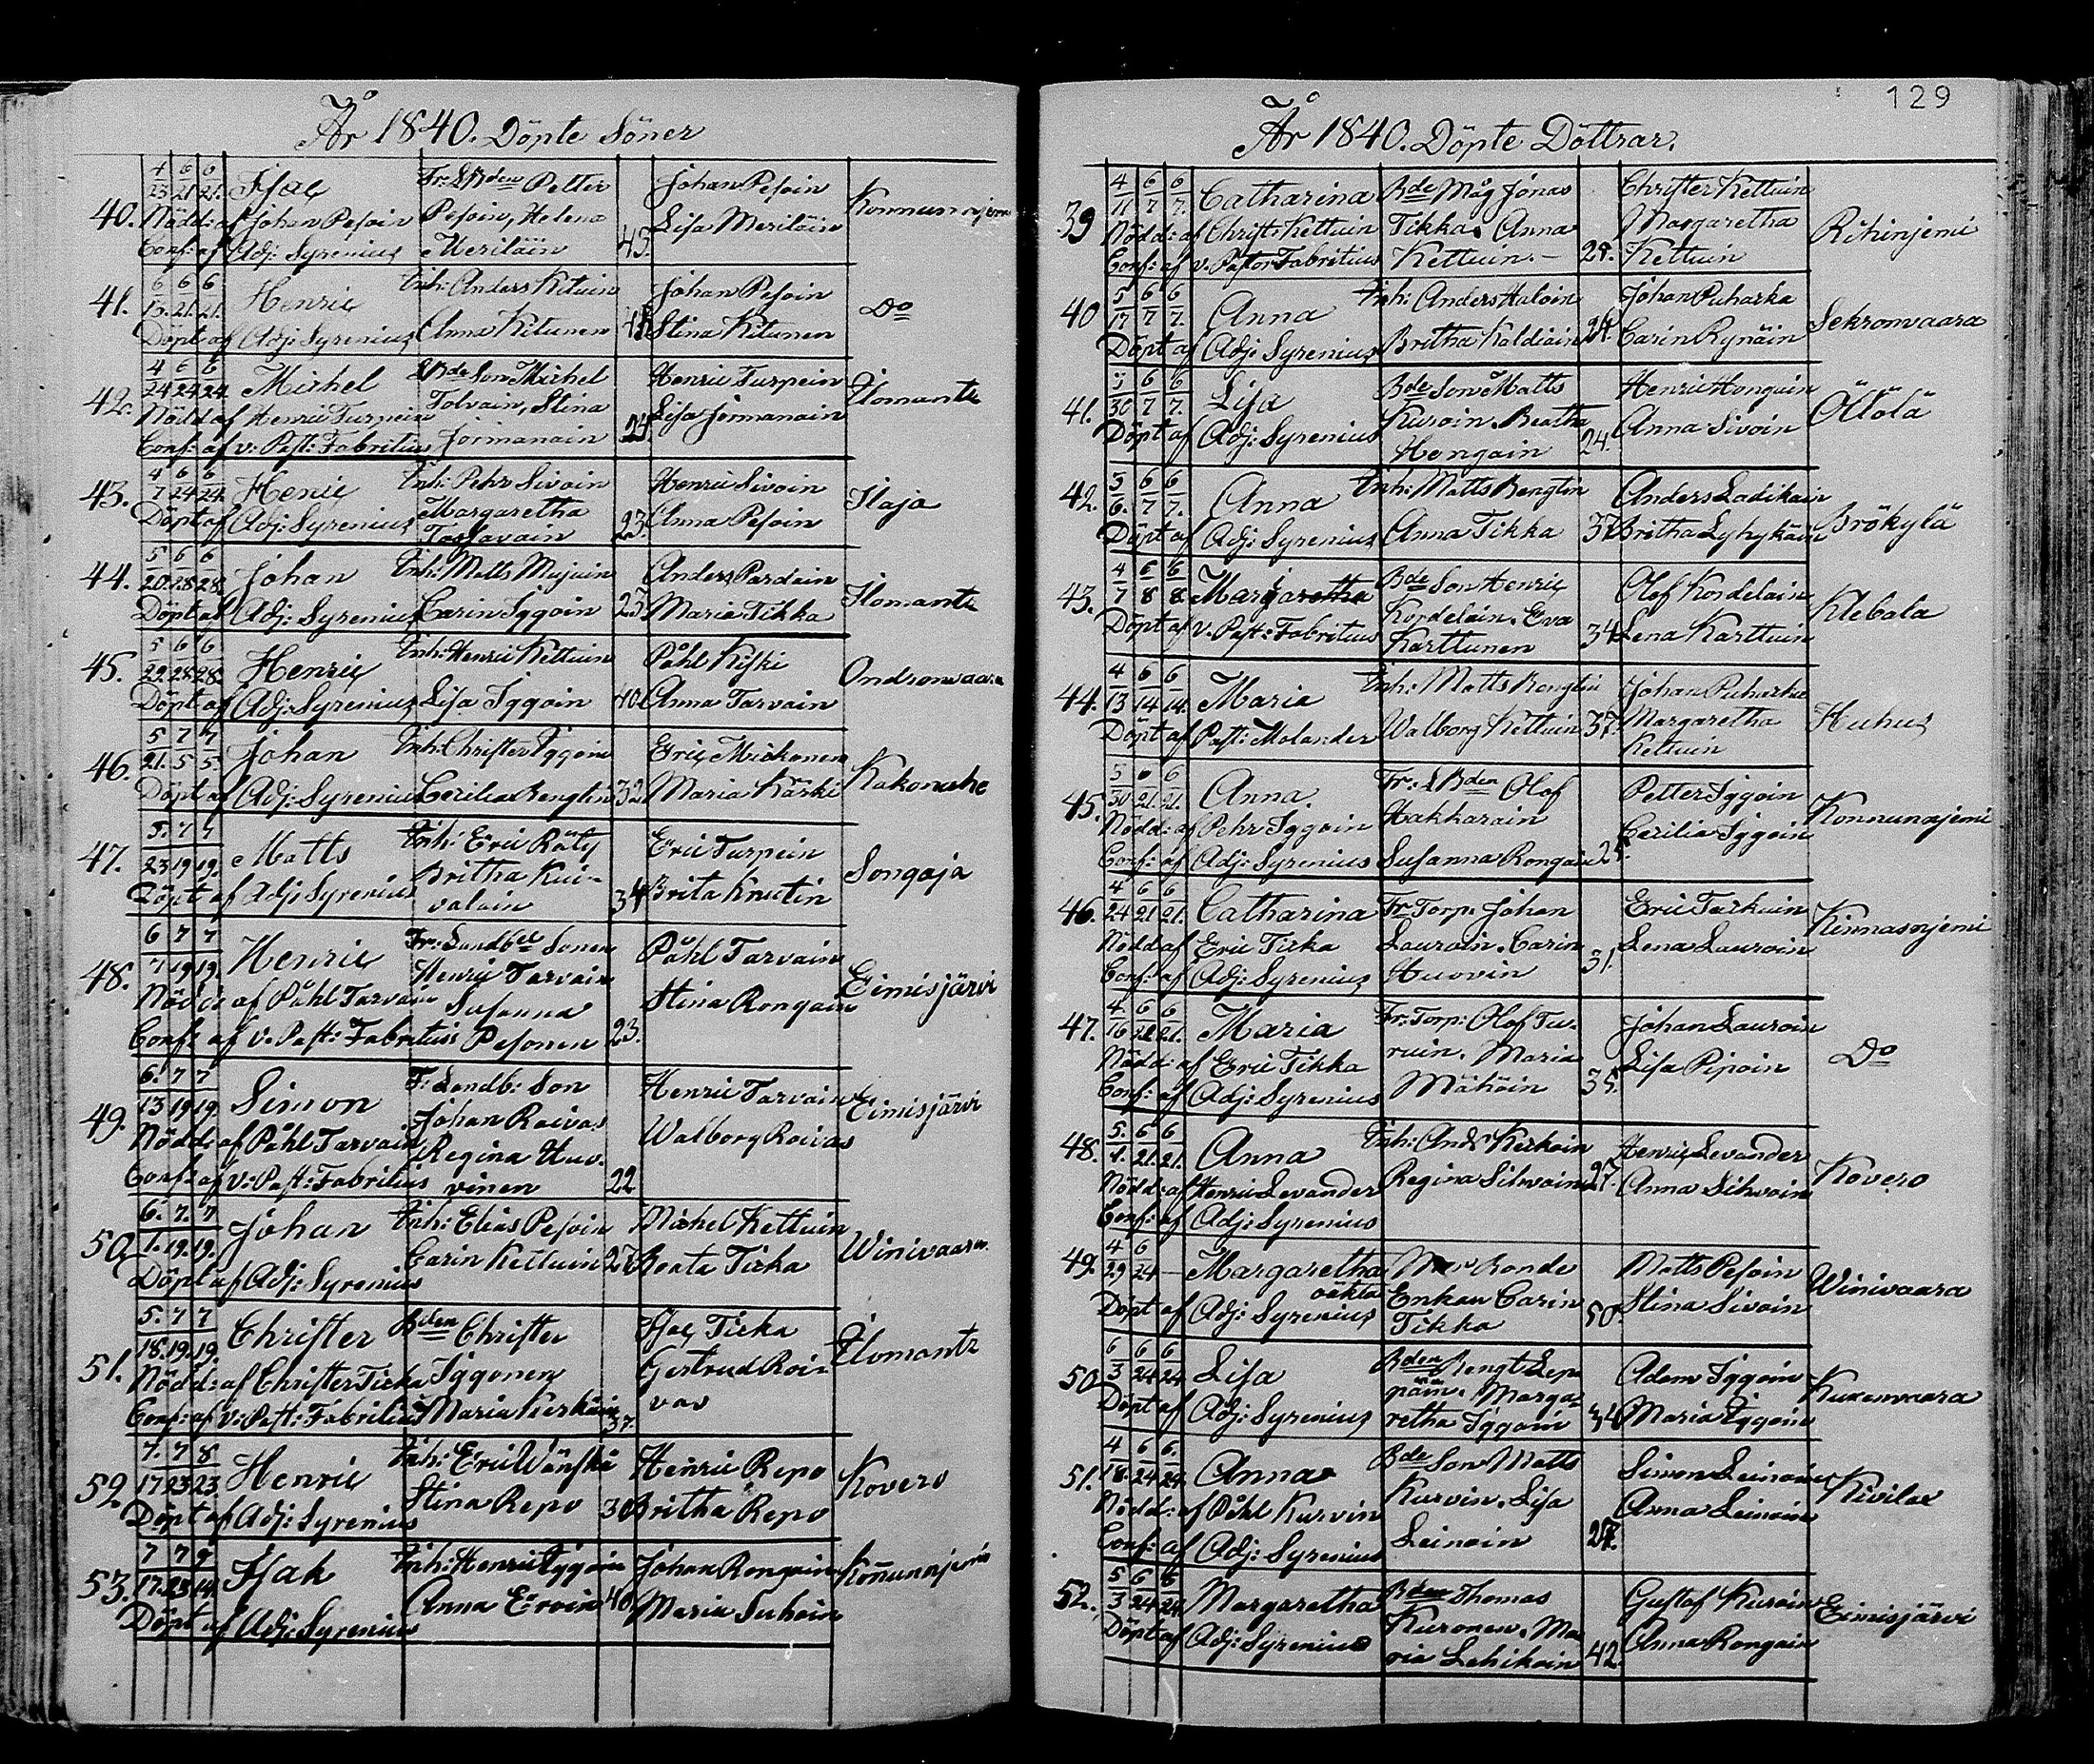 År 1840. Döpte Söner
4 6 6
23 21 21. Isac Fr: LBden Petter Johan Pesoin Konnunnjemi
40. Nödd: af Johan Pesoin Pesoin, Helena Lisa Meriläin
Conf: af Adj: Syrenius Meriläin 45.
6 6 6
41. 13. 21. 21. Henric Inh: Anders Kituin Johan Pesoin Do
Döpt af Adj: Syrenius Anna Kitunen Stina Kitunen
4 6 6
24 24 24 Michel LBde Son Michel Henric Turpein Ilomants
42. Nödd af Henric Turpein Tolvain, Stina Lisa Jormanain
Conf: af v: Past: Fabritius Jormanain 24.
4 6 6
43. 7 24 24. Henric Inh: Pehr Sivoin Henric Sivoin Ilaja
Döpt af Adj: Syrenius Margaretha 23. Anna Pesoin
Tossavain
5 6 6
44. 20. 28 28. Johan Inh: Matts Mujuin Anders Pardain Ilomants
Döpt af Adj: Syrenius Carin Iggoin 23. Maria Tikka
5 6 6
45. 29. 28 28. Henric Inh: Henric Kettuin Påhl Kiski Ondronvaara
Döpt af Adj: Syrenius Lisa Iggoin 40. Anna Tarvain
5 7 7
46. 21. 5 5 Johan Inh: Christer Iggoin Eric Mickonen Kakonaho
Döpt af Adj: Syrenius Cecilia Bengtin 32. Maria Kärki
5. 7 7
47. 23. 19 19. Matts Inh: Eric Räty Eric Turpein Songaja
Döpt af Adj: Syrenius Britha Kui- 34 Brita Knutin
valain
6 7 7
7 19. 19. Henric Fr: Landbd Sonen Påhl Tarvain Eimisjärvi
48. Nödd: af Påhl Tarvain Henric Tarvain Stina Rongain
Susanna
Conf: af v. Past: Fabritius Pesonen 23.
6. 7 7
13 19 19. Simon F: Landb: Son Henric Tarvain Eimisjärvi
49. Nödd: af Påhl Tarvain Johan Raivas Walborg Roivas
Conf: af v: Past: Fabritius Regina Huo-
vinen 22
6. 7. 7
50. 1. 19. 19. Johan Inh: Elias Pesoin Michel Kettuin Winivaara
Döpt af Adj: Syrenius Carin Kettuin 27. Beata Ticka
5. 7 7
18. 19. 19. Christer Bden Christer Isac Ticka Ilomants
51. Nödd: af Christer Ticka Iggonen Gertrud Roi-
Conf: af v: Past: Fabritius Maria 37. vas
7. 7 8
52. 17 23 23 Henric Inh: Eric Wänskä Henric Repo Kovero
Döpt af Adj: Syrenius Stina Repo 30 Britha Repo
7 7 9
53. 17. 23 14. Isak Inh: Henric Iggoin Johan Rongain Konnunnjemi
Döpt af Adj: Syrenius Anna Ervin 40. Maria Suhoin
129
År 1840. Döpte Döttrar.
4 6 6
39 11 7 7. Catharina Bde Måg Jonas Christer Kettuin Rihinjemi
Nödd: af Christ: Kettuin Tikka. Anna Margaretha
Conf: af v. Pastor Fabritius Kettuin.- Kettuin
5 6 6
40 17 7 7. Anna Inh: Anders Haloin Johan Puharka Sekronvaara
Döpt af Adj: Syrenius Britha Koldiain 24. Carin Rynäin
5 6 6
41. 30 7 7. Lisa Bde Son Matts Henric Hongain Öllölä
Döpt af Adj: Syrenius Kuroin. Beatha 24. Anna Sivoin
Hongain
5 6 6
42. 6. 7 7. Anna Inh: Matts Bengtin Anders Ladikain Brökylä
Döpt af Adj: Syrenius Anna Tikka 37 Britha Lyhykäin
4 6 6
43. 7 8 8. Margaretha Bde Son Henric Olof Kordelain Klebala
Döpt af v. Past: Fabritius Kordelain. Eva 34 Lena Karttuin
Karttunen
4 6 6
44. 13 14 14. Maria Inh: Matts Bengtin Johan Puharka Huhus
Döpt af Past: Molander Walborg Kettuin 37. Margaretha
Kettuin
5 6 6
45. 30 21. 21. Anna. Fr: LBden Olof Petter Iggoin Konnunnjemi
Nödd: af Pehr Iggoin Hakkarain Cecilia Iggoin
Conf: af Adj: Syrenius Susanna Rongain
4 6 6
46. 24 21 21. Catharina Fr Torp: Johan Eric Turkuin Kinnasnjemi
Nödd af Eric Ticka Lauroin. Carin Lena Lauroin
Conf: af Adj: Syrenius Huovin 31.
4. 6 6
47. 16 21. 21. Maria Fr: Torp: Olof Tu- Johan Lauroin Do
Nödd: af Eric Tikka ruin. Maria Lisa Pipoin
Conf: af Adj: Syrenius Mähöin 35.
5. 6 6
48. 1. 21. 21. Anna Inh: And: Kerkoin Henric Levander Kovero
Nödd: af Henric Levander Regina Silvoin 27. Anna Silvoin
Conf: af Adj: Syrenius
4 6
49. 29 24 - Margaretha Bonde Matts Pesoin Winivaara
oäkta Enkan Carin 50. Stina Sivoin
Döpt af Adj: Syrenius Tikka
6 6 6
50. 3 24 24 Lisa Bden Bengt Lep- Adam Iggoin Kuxenvaara
Döpt af Adj: Syrenius päin. Marga- 34 Maria Iggoin
retha Iggoin
4 6 6.
51. 18. 24 24 Anna Bde Son Matts Simon Leinoin Kivilax
Nödd: af Påhl Kurvin Kurvin. Lisa Anna Leinoin
Conf: af Adj: Syrenius Leinoin 27.
5 6 6
52. 3 24 24 Margaretha Bden Thomas Gustaf Kuroin Eimisjärvi
Döpt af Adj: Syrenius Kuronen. Ma- Anna Rongain
ria Lehikoin 42.